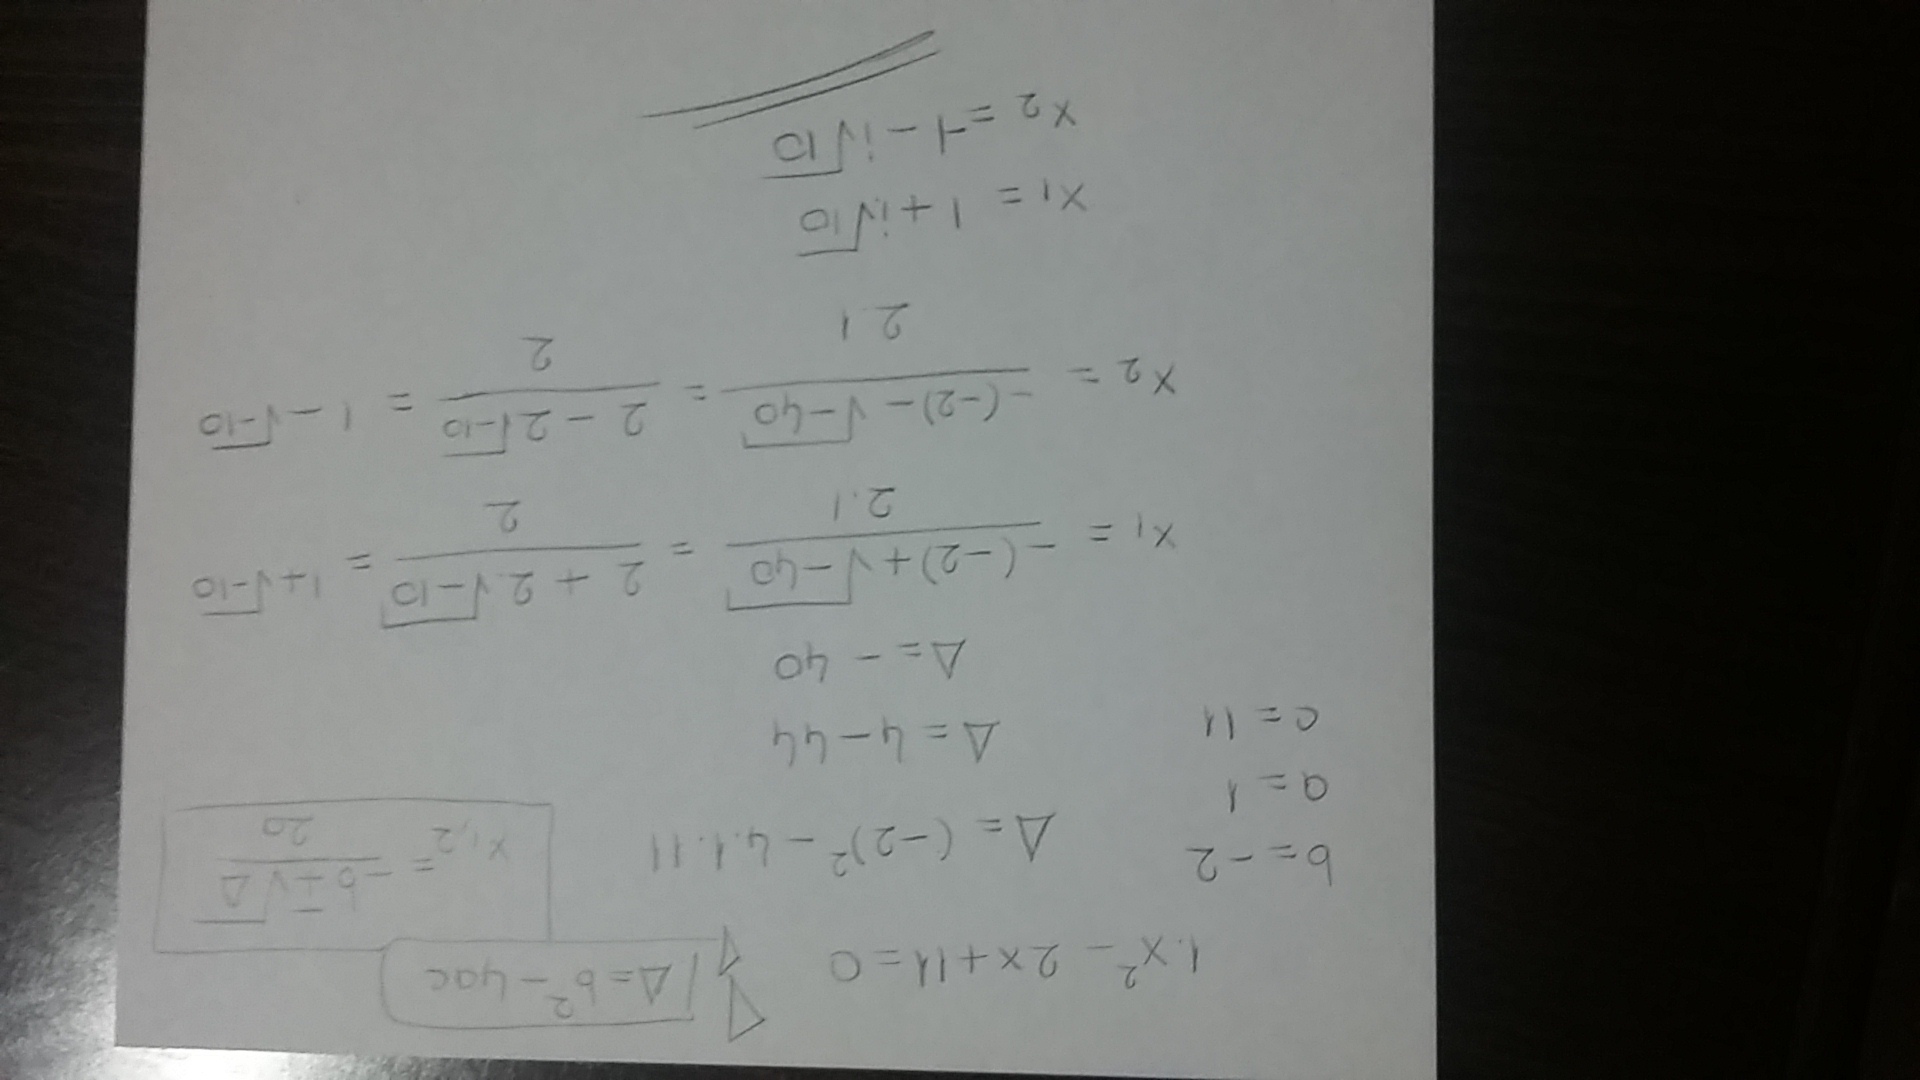 1.x² - 2x+11=0
Δ=b²-4ac
b=-2
a=1
c=11
Δ=(-2)²-4.1.11
Δ=4-44
Δ=-40
x1,2 = -b∓√Δ / 2a
x1 = -(-2)+√-40 / 2.1 = 2+2√-10 / 2 = 1+√-10
x2 = -(-2)-√-40 / 2 1 = 2-2√-10 / 2 = 1-√-10
x1 = 1+i√10
x2 = 1-i√10